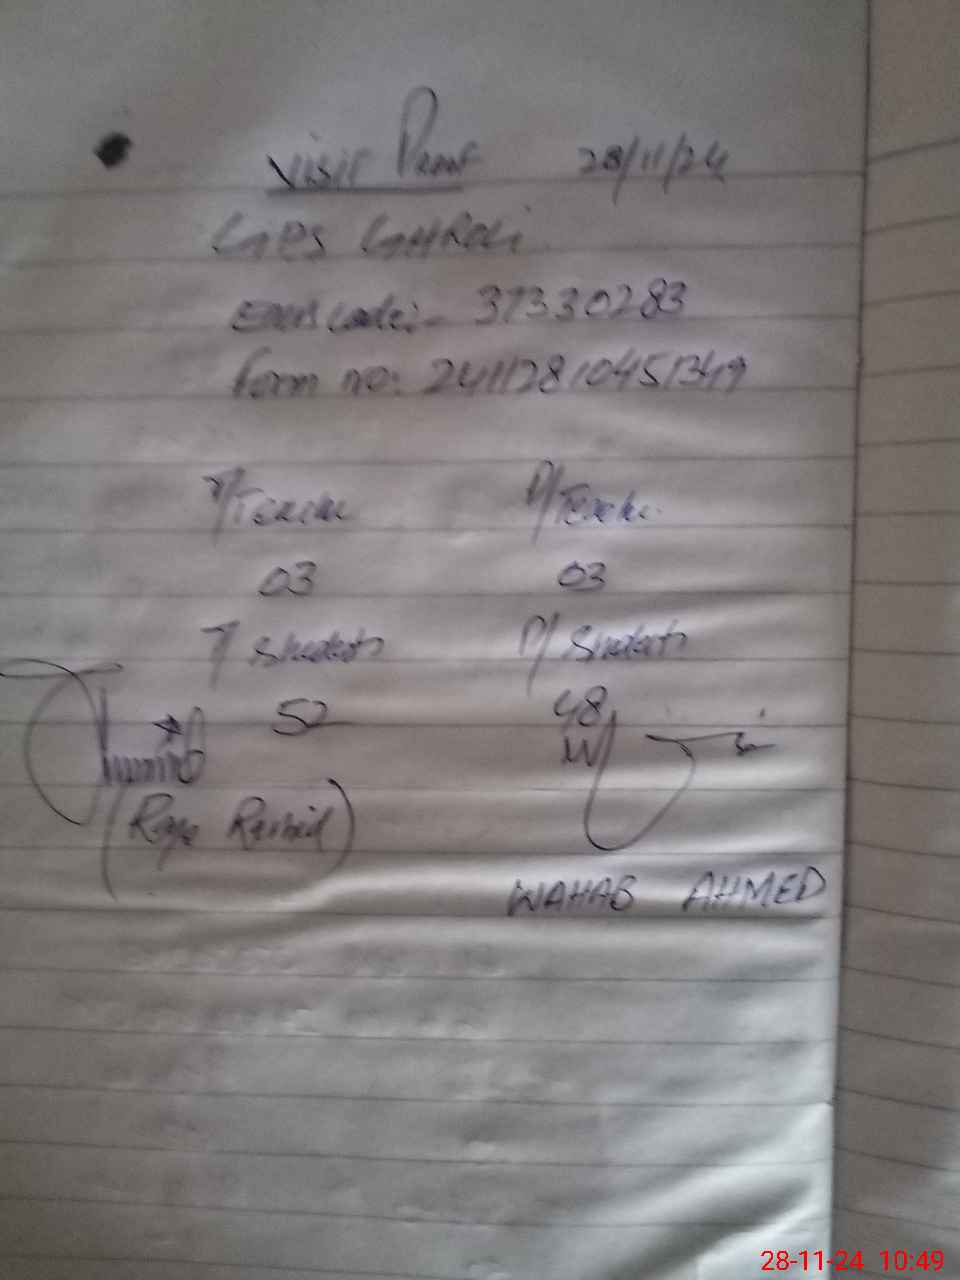 Visit Proof 28/11/24
GPS GHROLi
EMIS code:- 37330283
form no: 24112810451349
T/Teache P/Teache
03 03
T/ Students P/ Students
52 48
(Raja Rashid)
WAHAB AHMED
28-11-24 10:49